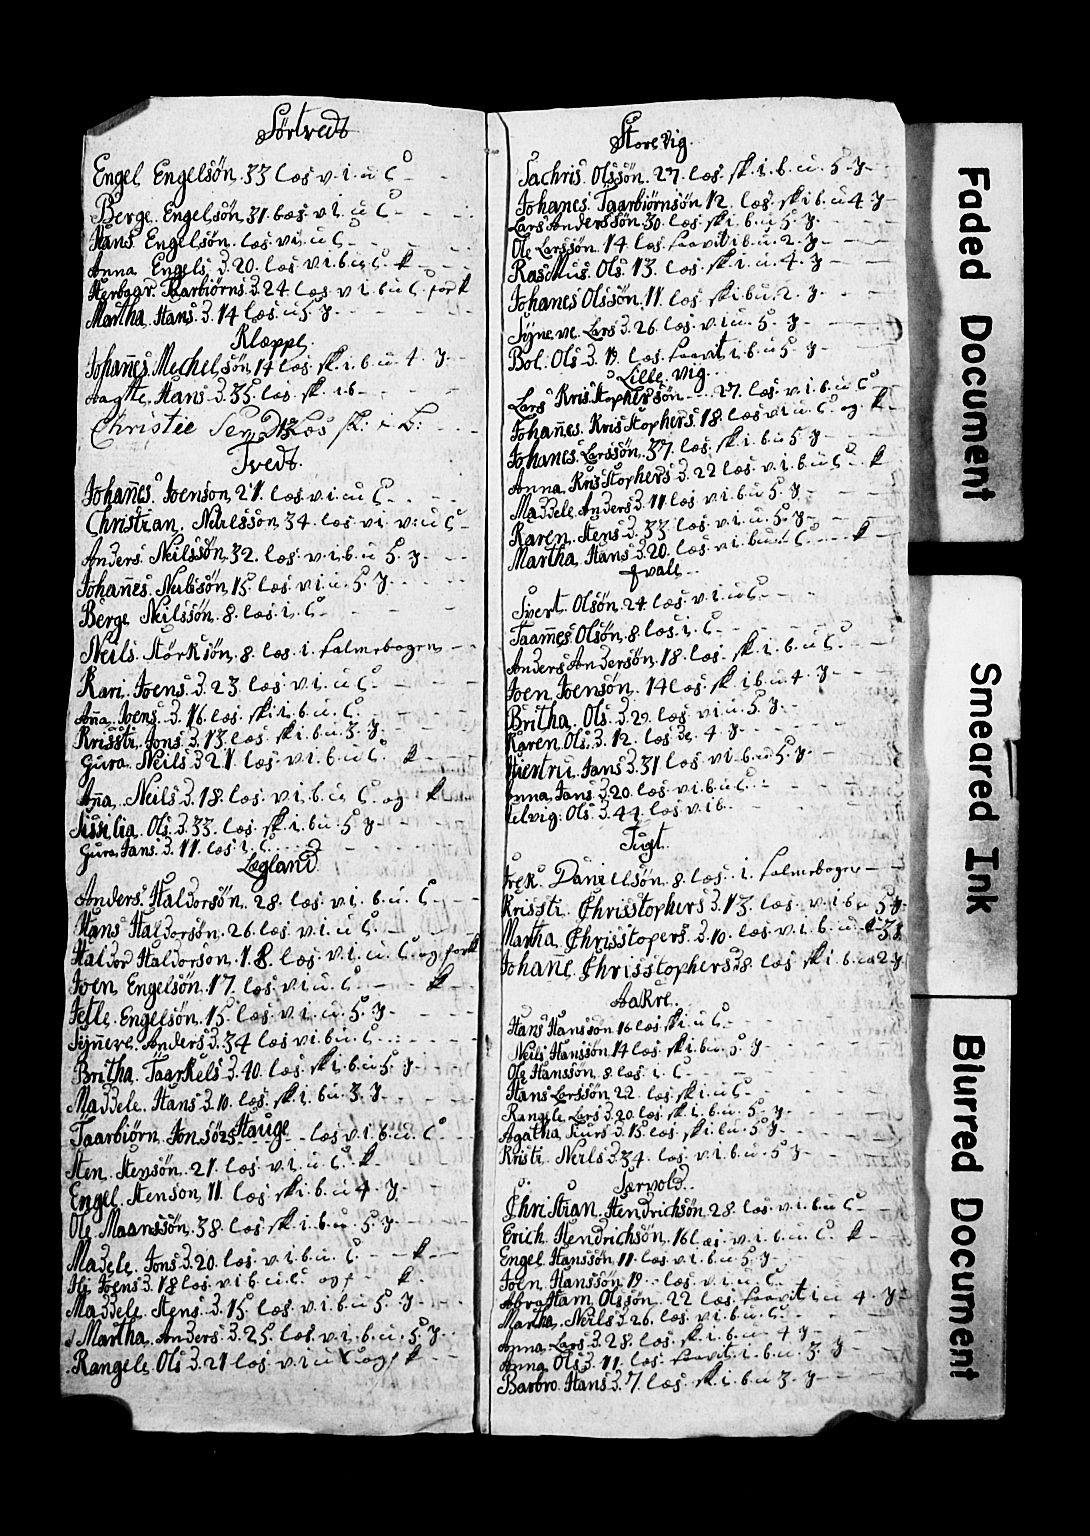 Sörtvedt
Engel Engelsön 33 læs v. i. u C
Berge Engelsön 31 læs v i. u C
Hans Engelsön læs vi. u C
Anna Engels D. 20. læs v. i. b. u. C. k
D. 24. læs v i b u C k
Martha Hans D. 14 læs u 5 J
Kloppe
Johannes Mechelsön 14 læs. sk. i. b. u 4. J
Aagtte Hans D. 35. læs sk. i b
Christie Læs sk: i B:
Tvedt.
Johannes Joenson 21. læs. v. i. u C
Christian Neilssön 34. læs vi u C
Anders Neilssön 32. læs v. i. b. u 5. J
Johannes Neilssön 15. læs v. i. u. 5. J
Berge Neilssön 8. læs. i. C
Neils Störksön 8. læs. i.
Kari Joens D. 23. læs v. i. u C
Aña Joens D. 16 læs. sk. i. b. u. C
Krissti Jons D. 13. læs sk. i. b. u. 3. J
Gura Neils D 21. læs v. i. b. u C. k
Aña Neils D. 18. læs. v. i. b. u. C. og k
Sissilia Ols D. 33. læs. sk. i. b. u. 5 J
Gura Jans D. 11. læs i C
Lægland
Anders Haldorsön 28. læs v. i. b. u. C
Hans Haldorsön 26. læs v. i. u. C
Haldor Haldorson 18. læs v. i. u. C. og
Joen Engelsön 17. læs v. i. u. C k
Engelsön 15. læs v. i. u. 5. J
Anders D. 34 læs v. i. b. u. C
Britha Taarkels D. 10. læs sk. i. b. u 5 J
Maddele Hans D. 10. læs sk. i. b. u. 3. J
Hauge
Taarbiörn Jonsön læs v. i. b. u. C
Sten Stensön. 21. læs v. i. u. C. k
Engel Stenson 11 læs sk i. b. u 4. J
Ole Maanssön 38. læs sk. i. b. u. 5. J
Madele Jons D. 20. læs v. i. b. u. C k
Joens D. 18 læs. v. i. b. u. C og k
Maddele Stens D. 15. læs v. i. b. u 5. J
Martha Anders D. 25. læs v. i. b. u. 5. J
Rangele Ols D. 21 læs v. i. u C og k
Store Vig.
Sachris Olssön. 27. læs. sk. i. b. u. 5. J
Johanes Taarbiörnsön 12. læs. sk i b. u 4. J
Lars Anderssön 30. læs sk i. b. u 5. J
Ole Larssön. 14 læs. i b. u. 2. J
Rasmus Ols. 13. læs sk. i. u. 4. J
Johanes Olssön. 11. læs sk i b u. 2. J
Lars D. 26. læs v. i. u. 5. J
Bol Ols D. 19. læs i. b. u 5 J
Lille Vig.
Lars Krisstopherssön 27. læs. v. i. b. u C
Johañes Krisstophers 18. læs v i. u. C. og k
Johanes Larssön 37. læs sk i. b. u 5. J
Anna Krisstophers D. 22 læs v. i. b. u C k
Maddele Anders D. 11 læs v i. b. u 5 J
Karen Stens D. 33. læs v. i. u. 5. J
Martha Hans D. 20. læs v i. b. u. C k
Sivert Olsön. 24 læs v i. u C
Taames Olsön. 8. læs. i. C
Anders Andersön. 18. læs sk. i. b. u C
Joen Joensön. 14 læs. sk. i. b. u. 4. J
Britha Ols D. 29. læs v i. u. 5. J
Karen Ols D. 12. læs 4 J
Jans D. 31 læs v. i. b. u 5 J
Anna Jans D. 20. læs v. i. b. u C.
Ols D. 44. læs v. i b.
Danielsön. 8. læs. i.
Krissti Chrisstophers D. 13. læs. v i b u 5 J
Martha Chrisstopers D. 10. læs v. i. b. u. 3 J
Johane Chrisstophers D. 8. læs sk i. b. u 2 J
Aakre.
Hans Hanssön 16 læs. sk i. u C
Neils Hanssön 14 læs. sk i. b. u. 5 J
Ole Hanssön. 8. læs. i. C
Hans Larssön 22. læs. sk. i. u C
Rangele Lars D. 20. læs sk i. b. u. 5. J
Agatha D. 15. læs sk i. b. u 5 J
Kristi Neils D 34. læs v. i. u. b. u. 5 J
Særvold.
Christian Hendrichsön. 28. læs. v. i. b. u C
Erich Hendrichsön. 16 læs. v. i. b. u. C. k
Engel Hanssön 11. læs v. i. b. u 5 J
Joen Hanssön 19. læs. v. i. u. C
Abraham Olssön. 22 læs. i u 4. J
Martha Neils D 26. læs. v i. u. C
Anna Lars D. 28. læs. sk. i. b. u. 4 J
Anna Ols D. 11. læs. i. b. u. 3 J
Barbro Hans D. 7. læs. sk. i. b. u 3. J
Faded Document
Smeared Ink
Blurred Document